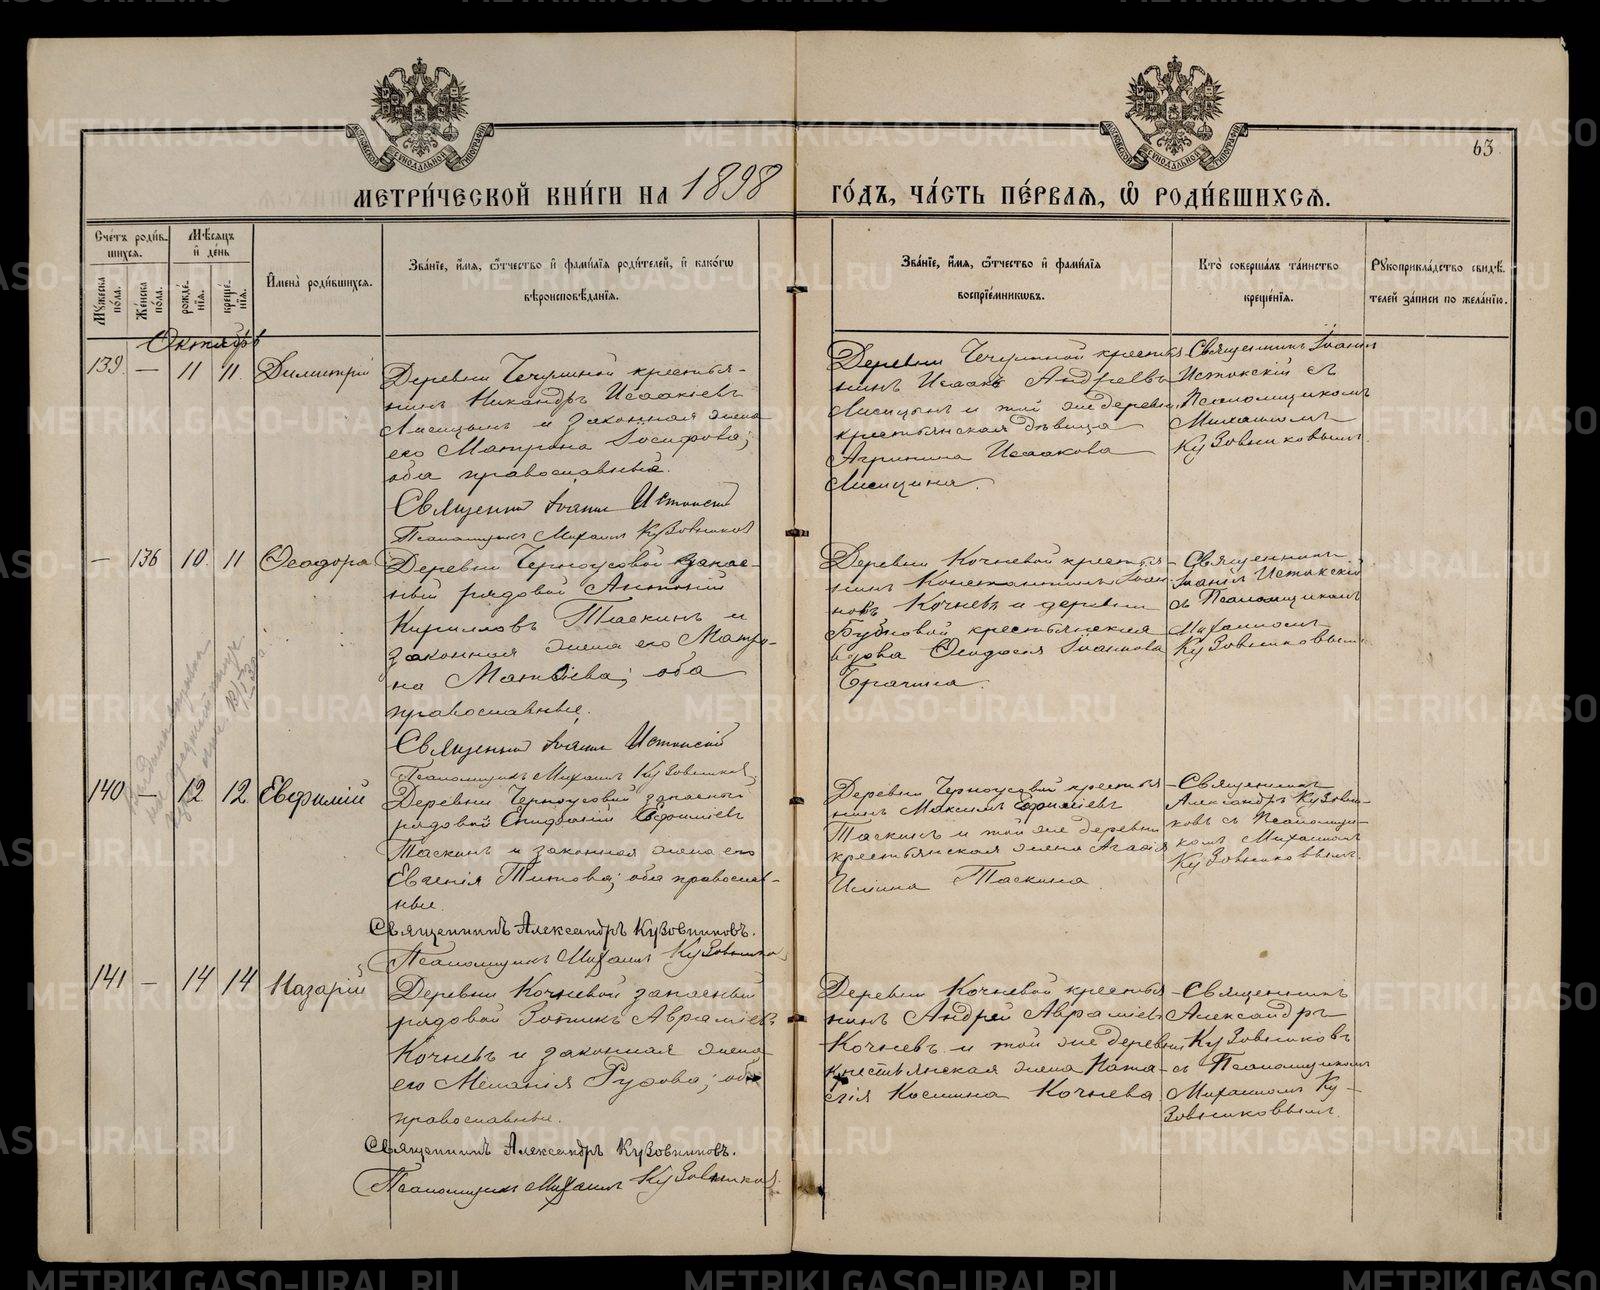 63
МЕТРИ́ЧЕСКОЙ КНИ́ГИ НА 1898 ГО́ДЪ, ЧА́СТЬ ПЕ́РВАЯ, Ѡ҆ РОДИ́ВШИХСЯ.
МОСКОВСКОЙ СѴНОДАЛЬНОЙ ТИПОГРАФІИ
МОСКОВСКОЙ СѴНОДАЛЬНОЙ ТИПОГРАФІИ
Сче́тъ роди́в-
шихся.
Му́жеска по́ла.
Же́нска по́ла.
Мѣ́сяцъ
и҆ де́нь
рожде́-
нїя.
креще́-
нїя.
И҆мена̀ роди́вшихся.
Зва́нїе, и҆́мя, ѻ҆́тчество и҆ фами́лїя роди́телей, и҆ како́гѡ
вѣроисповѣ́данїя.
Зва́нїе, и҆́мя, ѻ҆́тчество и҆ фами́лїя
воспрїе́мниковъ.
Кто̀ соверша́лъ та́инство
креще́нїя.
Рꙋкоприкла́дство свидѣ́-
телей за́писи по жела́нїю.
Октябрь
139 — 11 11 Димитрій
Деревни Чечулиной крестья-
нинъ Никандръ Исаакіевъ
Лисицынъ и законная жена
его Матрона Іосифова;
оба православные.
Священник Іоанн Истокский
Псаломщикъ Михаилъ Кузовников
Деревни Чечулиной крестья-
нинъ Исаакъ Андреевъ
Лисицынъ и той же деревни
крестьянская дѣвица
Агрипина Исаакова
Лисицина.
Священникъ Іоаннъ
Истокскій съ
Псаломщикомъ
Михаиломъ
Кузовниковымъ.
— 136 10 11 Ѳеодора
Деревни Черноусовой запас-
ный рядовой Антоній
Кирилловъ Таскинъ и
законная жена его Матро-
на Матѳіева; оба
православные.
Священник Іоанн Истокский
Псаломщикъ Михаилъ Кузовников
Деревни Кочневой крестья-
нинъ Константинъ Іоан-
новъ Кочневъ и деревни
Бубновой крестьянская
вдова Ѳеодосія Іоаннова
Священникъ
Іоаннъ Истокскій
съ Псаломщикомъ
Михаиломъ
Кузовниковымъ.
140 — 12 12 Евфимій
Деревни Черноусовой запасный
рядовой Епифаній Ефиміевъ
Таскинъ и законная жена его
Евгенія Титова; оба православ-
ные.
Священникъ Александръ Кузовниковъ.
Псаломщикъ Михаилъ Кузовников
Деревни Черноусовой крестья-
нинъ Максимъ Ефиміевъ
Таскинъ и той же деревни
крестьянская жена Агафія
Таскина.
Священникъ
Александръ Кузовни-
ковъ съ Псаломщи-
комъ Михаиломъ
Кузовниковымъ.
141 — 14 14 Назарій
Деревни Кочневой запасный
рядовой Зотикъ Авраміевъ
Кочневъ и законная жена
его Меланія; оба
православные.
Священникъ Александръ Кузовниковъ.
Псаломщикъ Михаилъ Кузовников
Деревни Кочневой крестья-
нинъ Андрей Авраміевъ
Кочневъ и той же деревни
крестьянская жена Ната-
лія Космина Кочнева
Священникъ
Александръ
Кузовниковъ
съ Псаломщикомъ
Михаиломъ Ку-
зовниковымъ.
METRIKI.GASO-URAL.RU